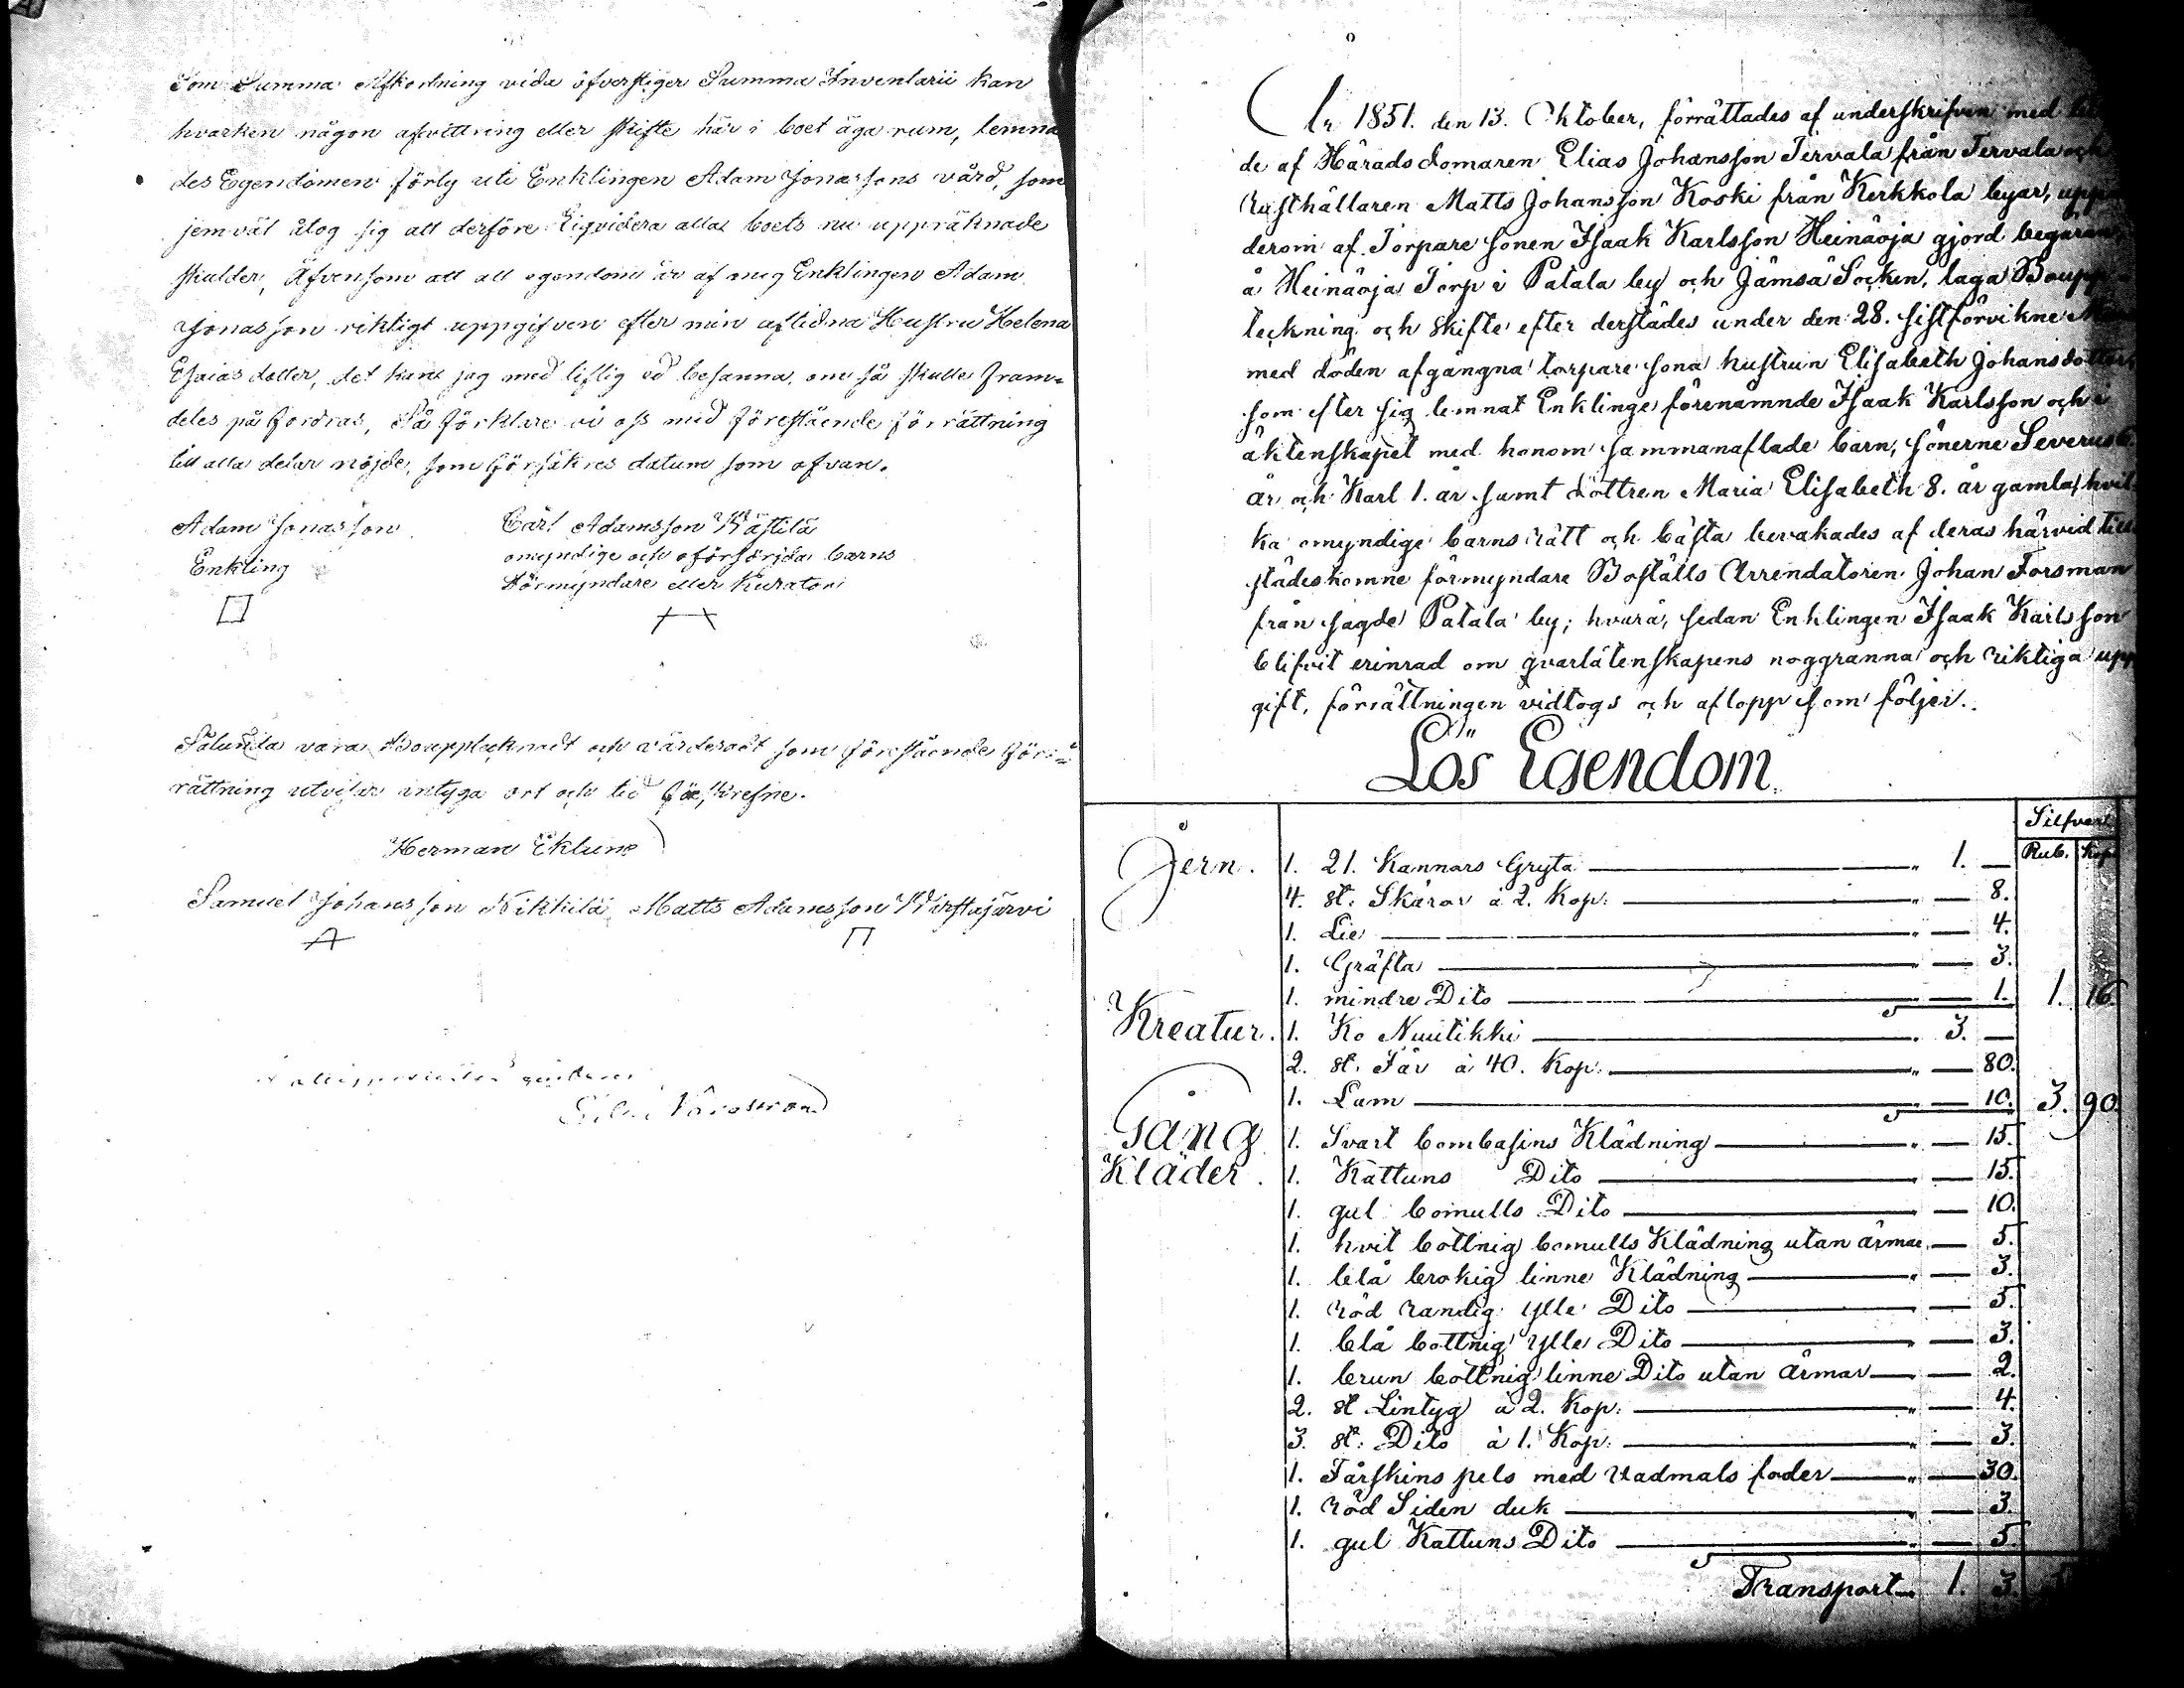 Som Summa Afkortning vida öfverstiger Summa Inventarii kan
hvarken någon afvittring eller skifte här i boet äga rum, lemna
des Egendomen förly uti Enklingen Adam Jonassons vård, som
jemväl åtog sig att derföre Liqvidera alla boets nu uppräknade
skulder, Äfvensom att all egendom är af mig Enklingen Adam
Jonasson riktigt uppgifven efter min aflidna Hustru Helena
Esaias dotter, det kan jag med liflig ed besanna, om så skulle fram-
deles på fordras, Så förklare vi oss med förestående förrättning
till alla delar nöjde, som försäkres datum som ofvan.
Adam Jonasson
Enkling
Carl Adamsson Wästilä
omyndige och oförsörjda barns
Förmyndare eller Kurator
Sålunda vara Bouppteknadt och värderadt som förestående för-
rättning utvisar intyga ort och tid förskrefne.
Herman Eklund
Samuel Johansson Nikkilä Matts Adamsson Wirstajärvi
År 1851. den 13. Oktober, förrättades af underskrifven med
de af Häradsdomaren Elias Johansson Tervala från Tervala och
Rusthållaren Matts Johansson Koski från Kerkkola byar, upp
derom af Torpare sonen Isaak Karlsson Heinäoja gjord begäran
å Heinäoja Torp i Patala by och Jämsä Socken, laga Boupp
teckning och skifte efter derstädes under den 28. sistförvikne
med döden afgångna torpare sona hustrun Elisabeth Johansdotter
som efter sig lemnat Enklinge förenämnde Isaak Karlsson och i
äktenskapet med honom sammanaflade barn, sönerne Severus 6.
år och Karl 1. år samt dottren Maria Elisabeth 8. år gamla, hvil
ka omyndige barns rätt och bästa bevakades af deras härvid till
städeskomne förmyndare Boställs Arrendatoren Johan Forsman
från sagde Patala by; hvarå, sedan Enklingen Isaak Karlsson
blifvit erinrad om qvarlåtenskapens noggranna och riktiga upp
gift, förrättningen vidtogs och aflopp som följer.
Lös Egendom
Silfver
Rub. Kop
Jern. 1. 21. Kannors Gryta " 1. —
4. st: Skäror à 2. Kop: " — 8.
1. Lie " — 4.
1. Gräfta " — 3.
1. mindre Dito — 1. 1. 16.
Kreatur. 1. Ko Nuutikki " 3. —
2. st. Får à 40. Kop: " — 80.
1. Lam " — 10. 3. 90.
Gång 1. Svart bombasins Klädning " — 15.
Kläder. 1. Kattuns Dito " — 15.
1. gul bomulls Dito " — 10.
1. hvit bottnig bomulls Klädning utan ärmar — 5.
1. blå brokig linne Klädning " — 3.
1. röd randig ylle Dito " — 5.
1. blå bottnig ylle Dito " — 3.
1. brun bottnig linne Dito utan ärmar — 2.
2. st Lintyg à 2. Kop: " — 4.
3. st: Dito à 1. Kop: " — 3.
1. Fårskins pels med vadmals foder " — 30.
1. röd Siden duk " — 3.
1. gul Kattuns Dito " — 5
Transport 1. 3.